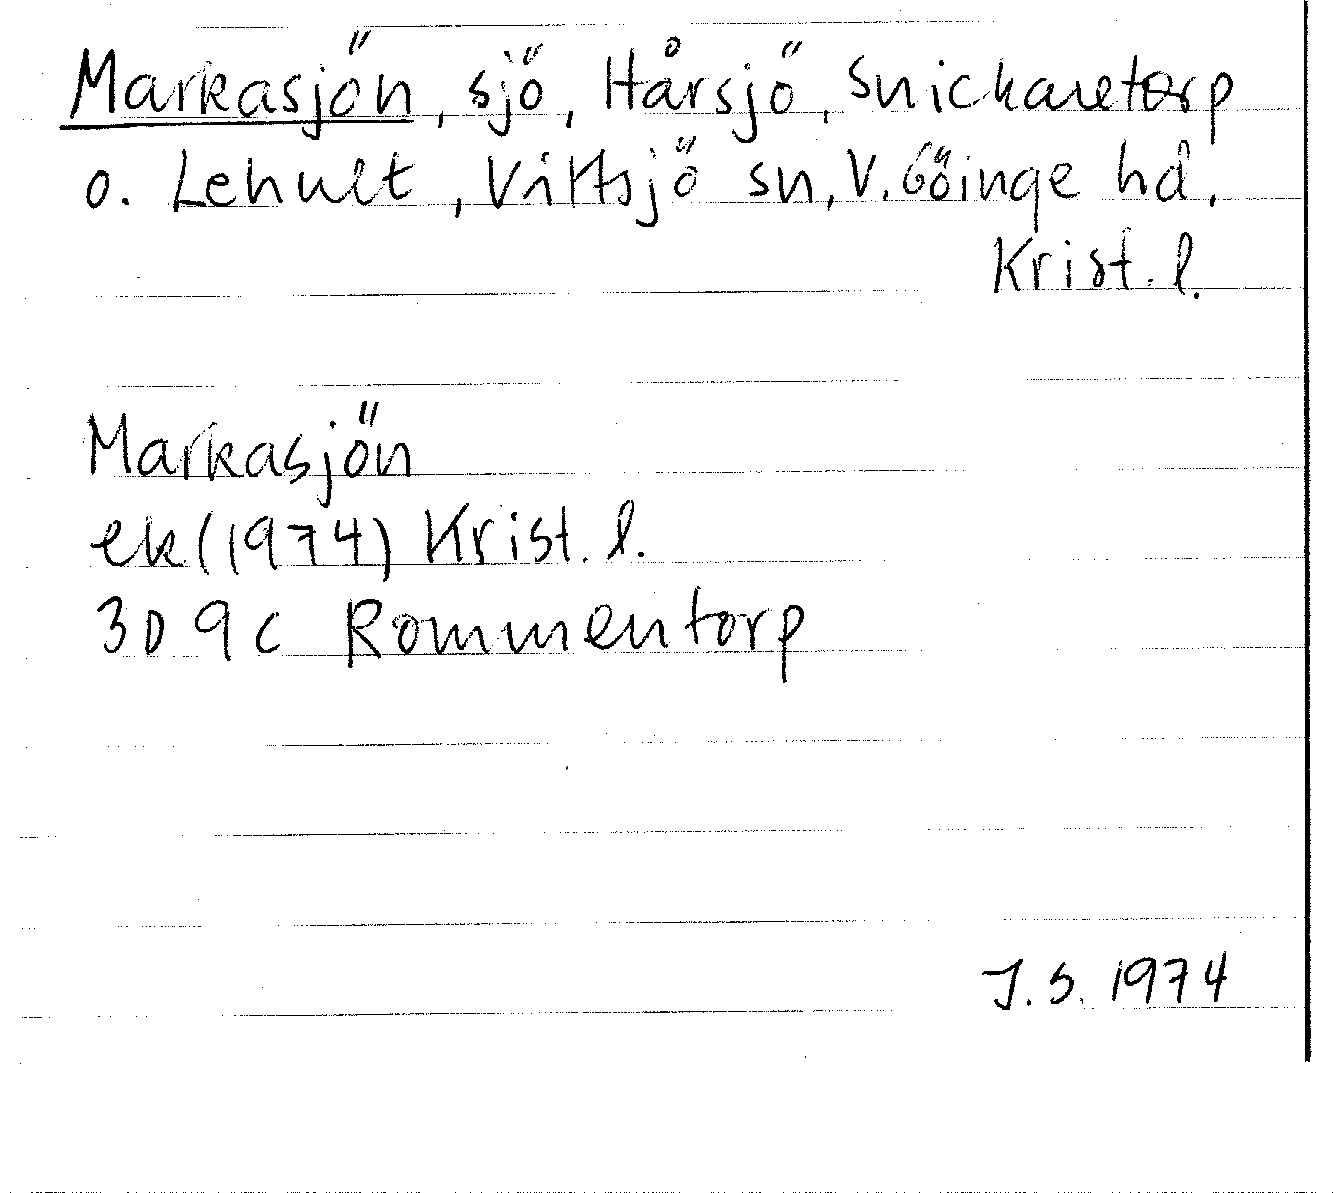 Markasjön, sjö, Hårsjö, Snickaretorp
o. Lehult, Vittsjö sn, V. Göinge hd.
Krist. l.
Markasjön
ek (1974) Krist. l.
3D 9c Rommentorp
J. S. 1974